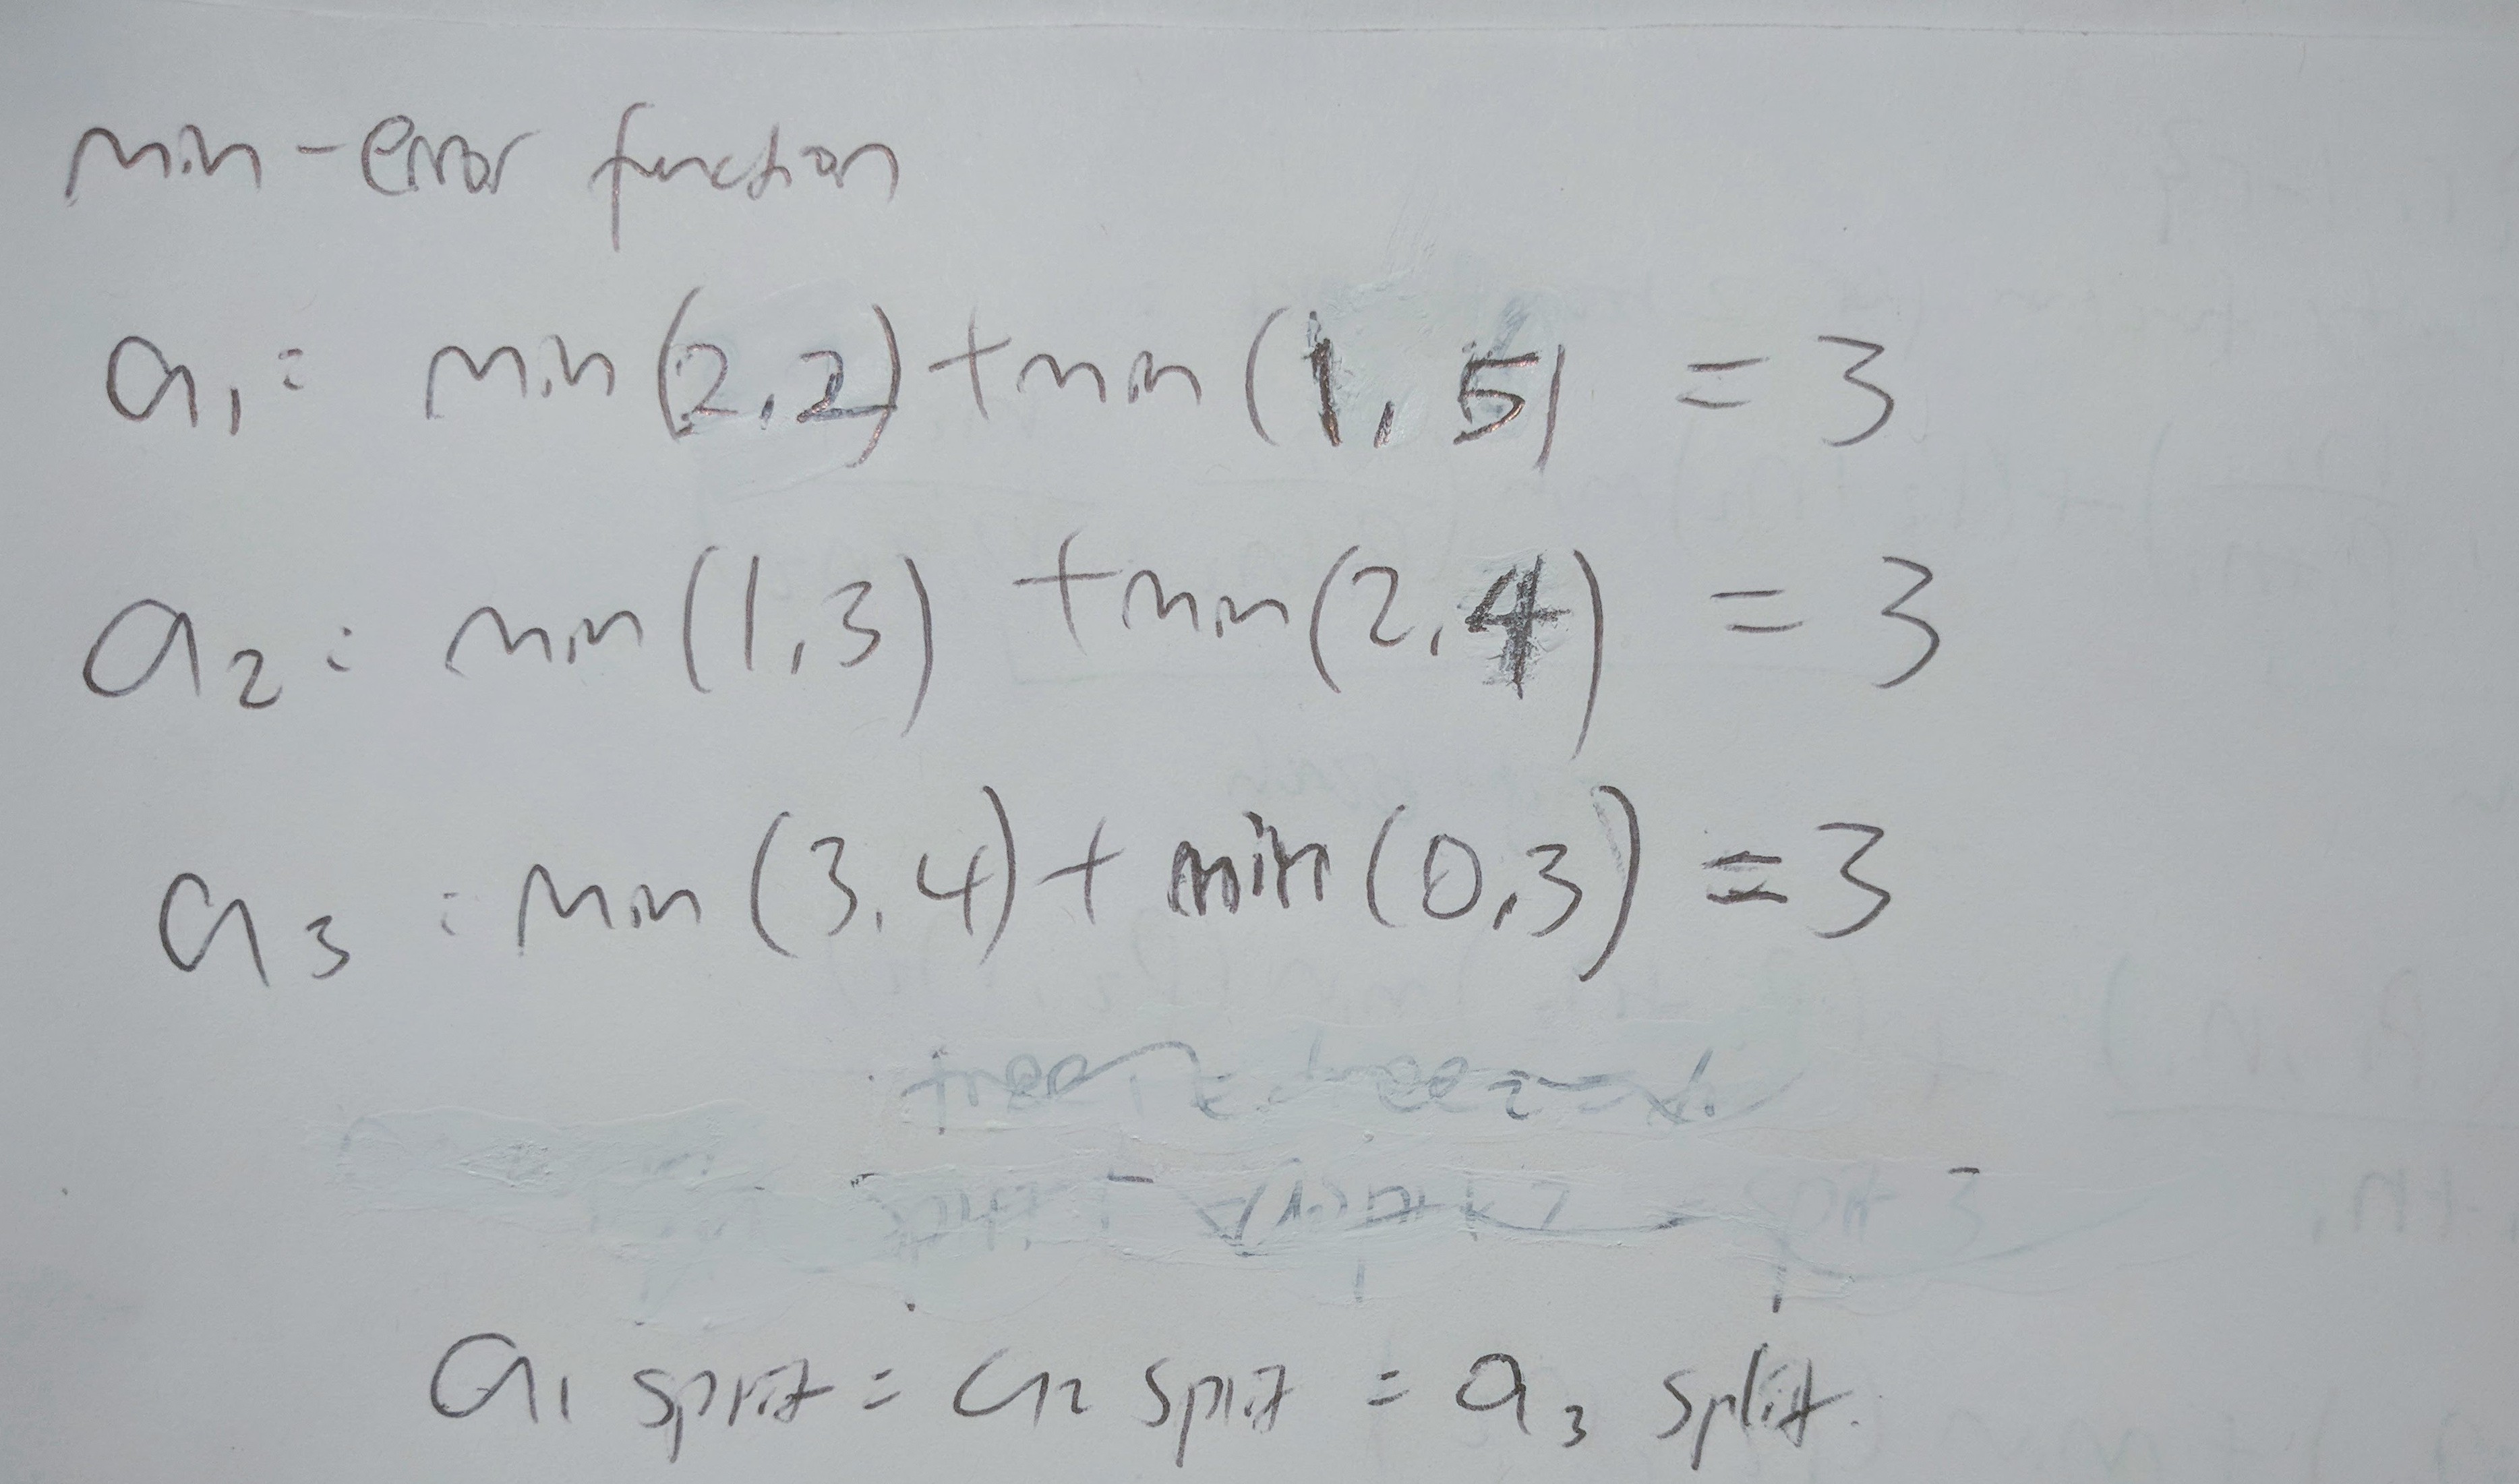 min-error function
a₁: min(2,2)+min(1,5) = 3
a₂: min(1,3) +min(2,4) = 3
a₃ : min(3,4)+min(0,3) = 3
a₁ split = a₂ split = a₃ split.